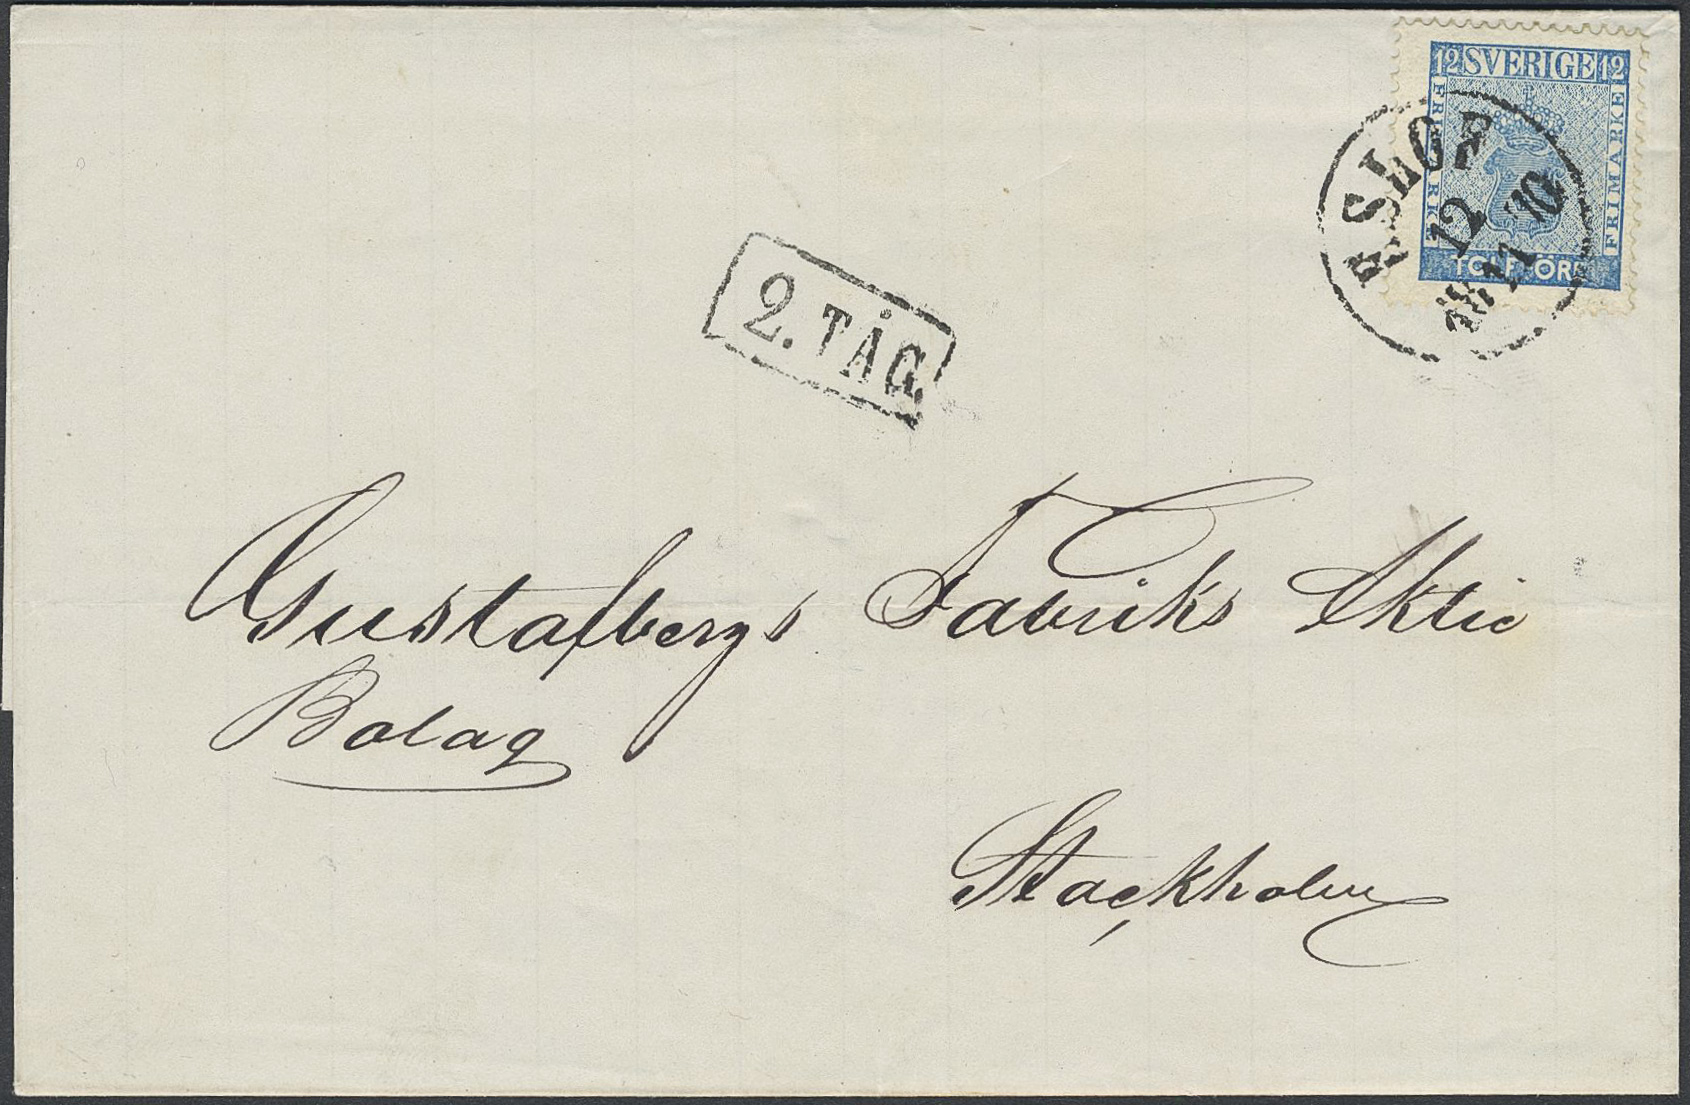 12 SVERIGE 12
FRIMÄRKE
FRIMÄRKE
TOLF ÖRE
ESLÖF
12
10
18
2. TÅG.
Gustafsbergs Fabriks Aktie
Bolag
Stockholm